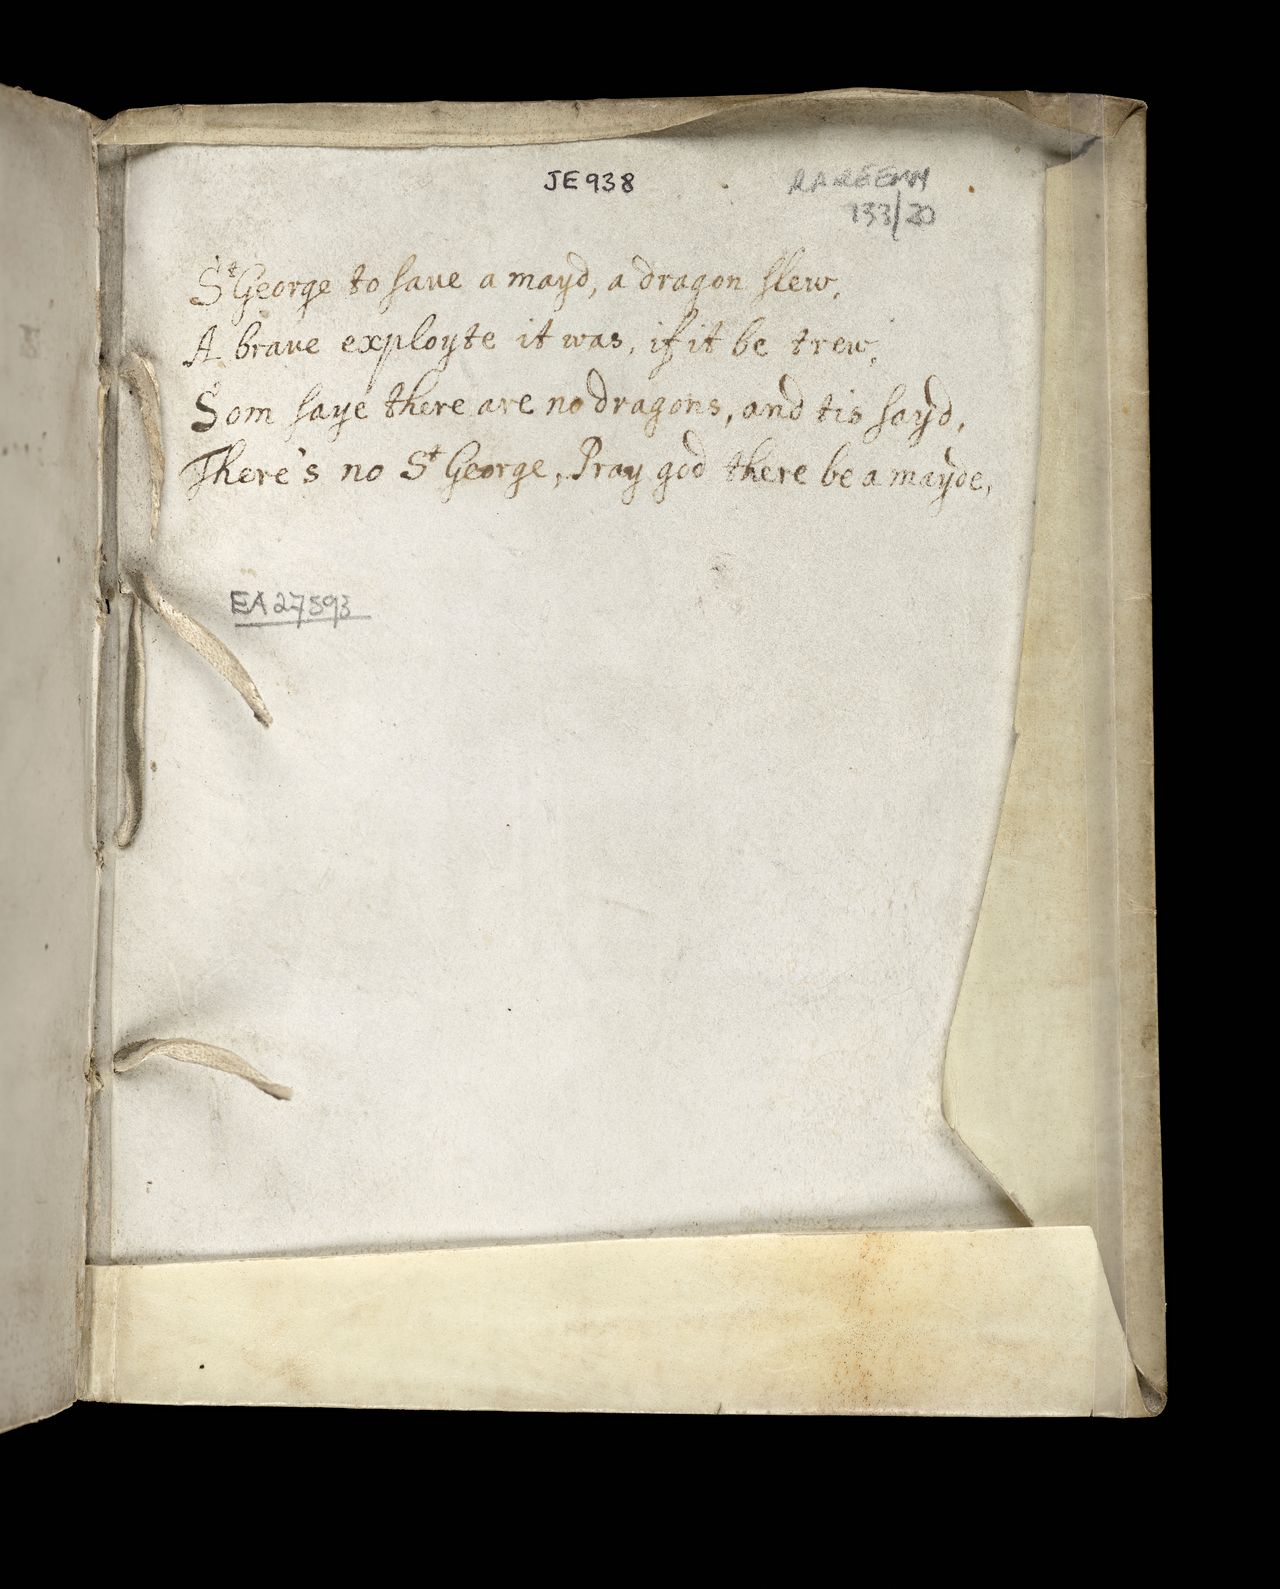 JE938
RAREEMM
133/20
St George to saue a mayd, a dragon slew,
A braue exployte it was, if it be trew,
Som saye there are no dragons, and tis sayd,
There's no St George, Pray god there be a mayde,
EA27593